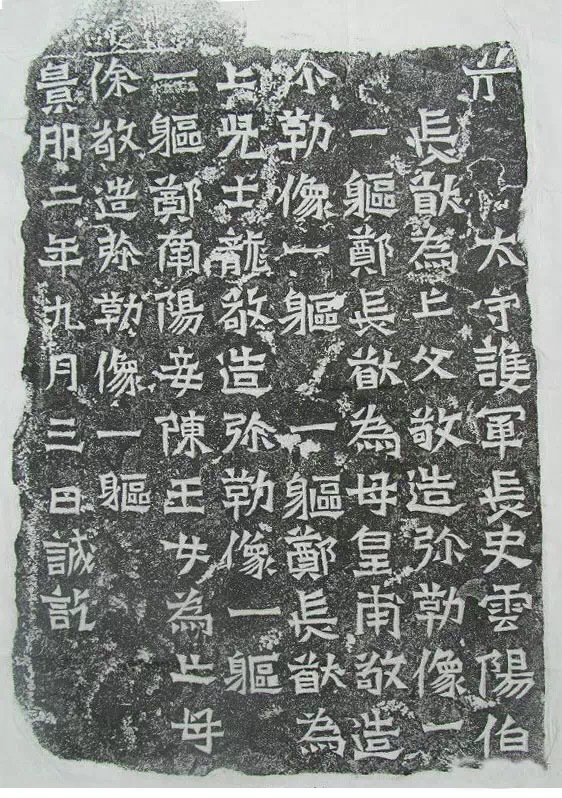 太守護軍長史雲陽伯
長猷為亡父敬造弥勒像一
一軀鄭長猷為母皇甫敬造
尒勒像一軀一軀鄭長猷為
亡兒士龍敬造弥勒像一軀
一軀鄭南陽妾陳玉女為亡母
徐敬造弥勒像一軀
景明二年九月三日誡訖